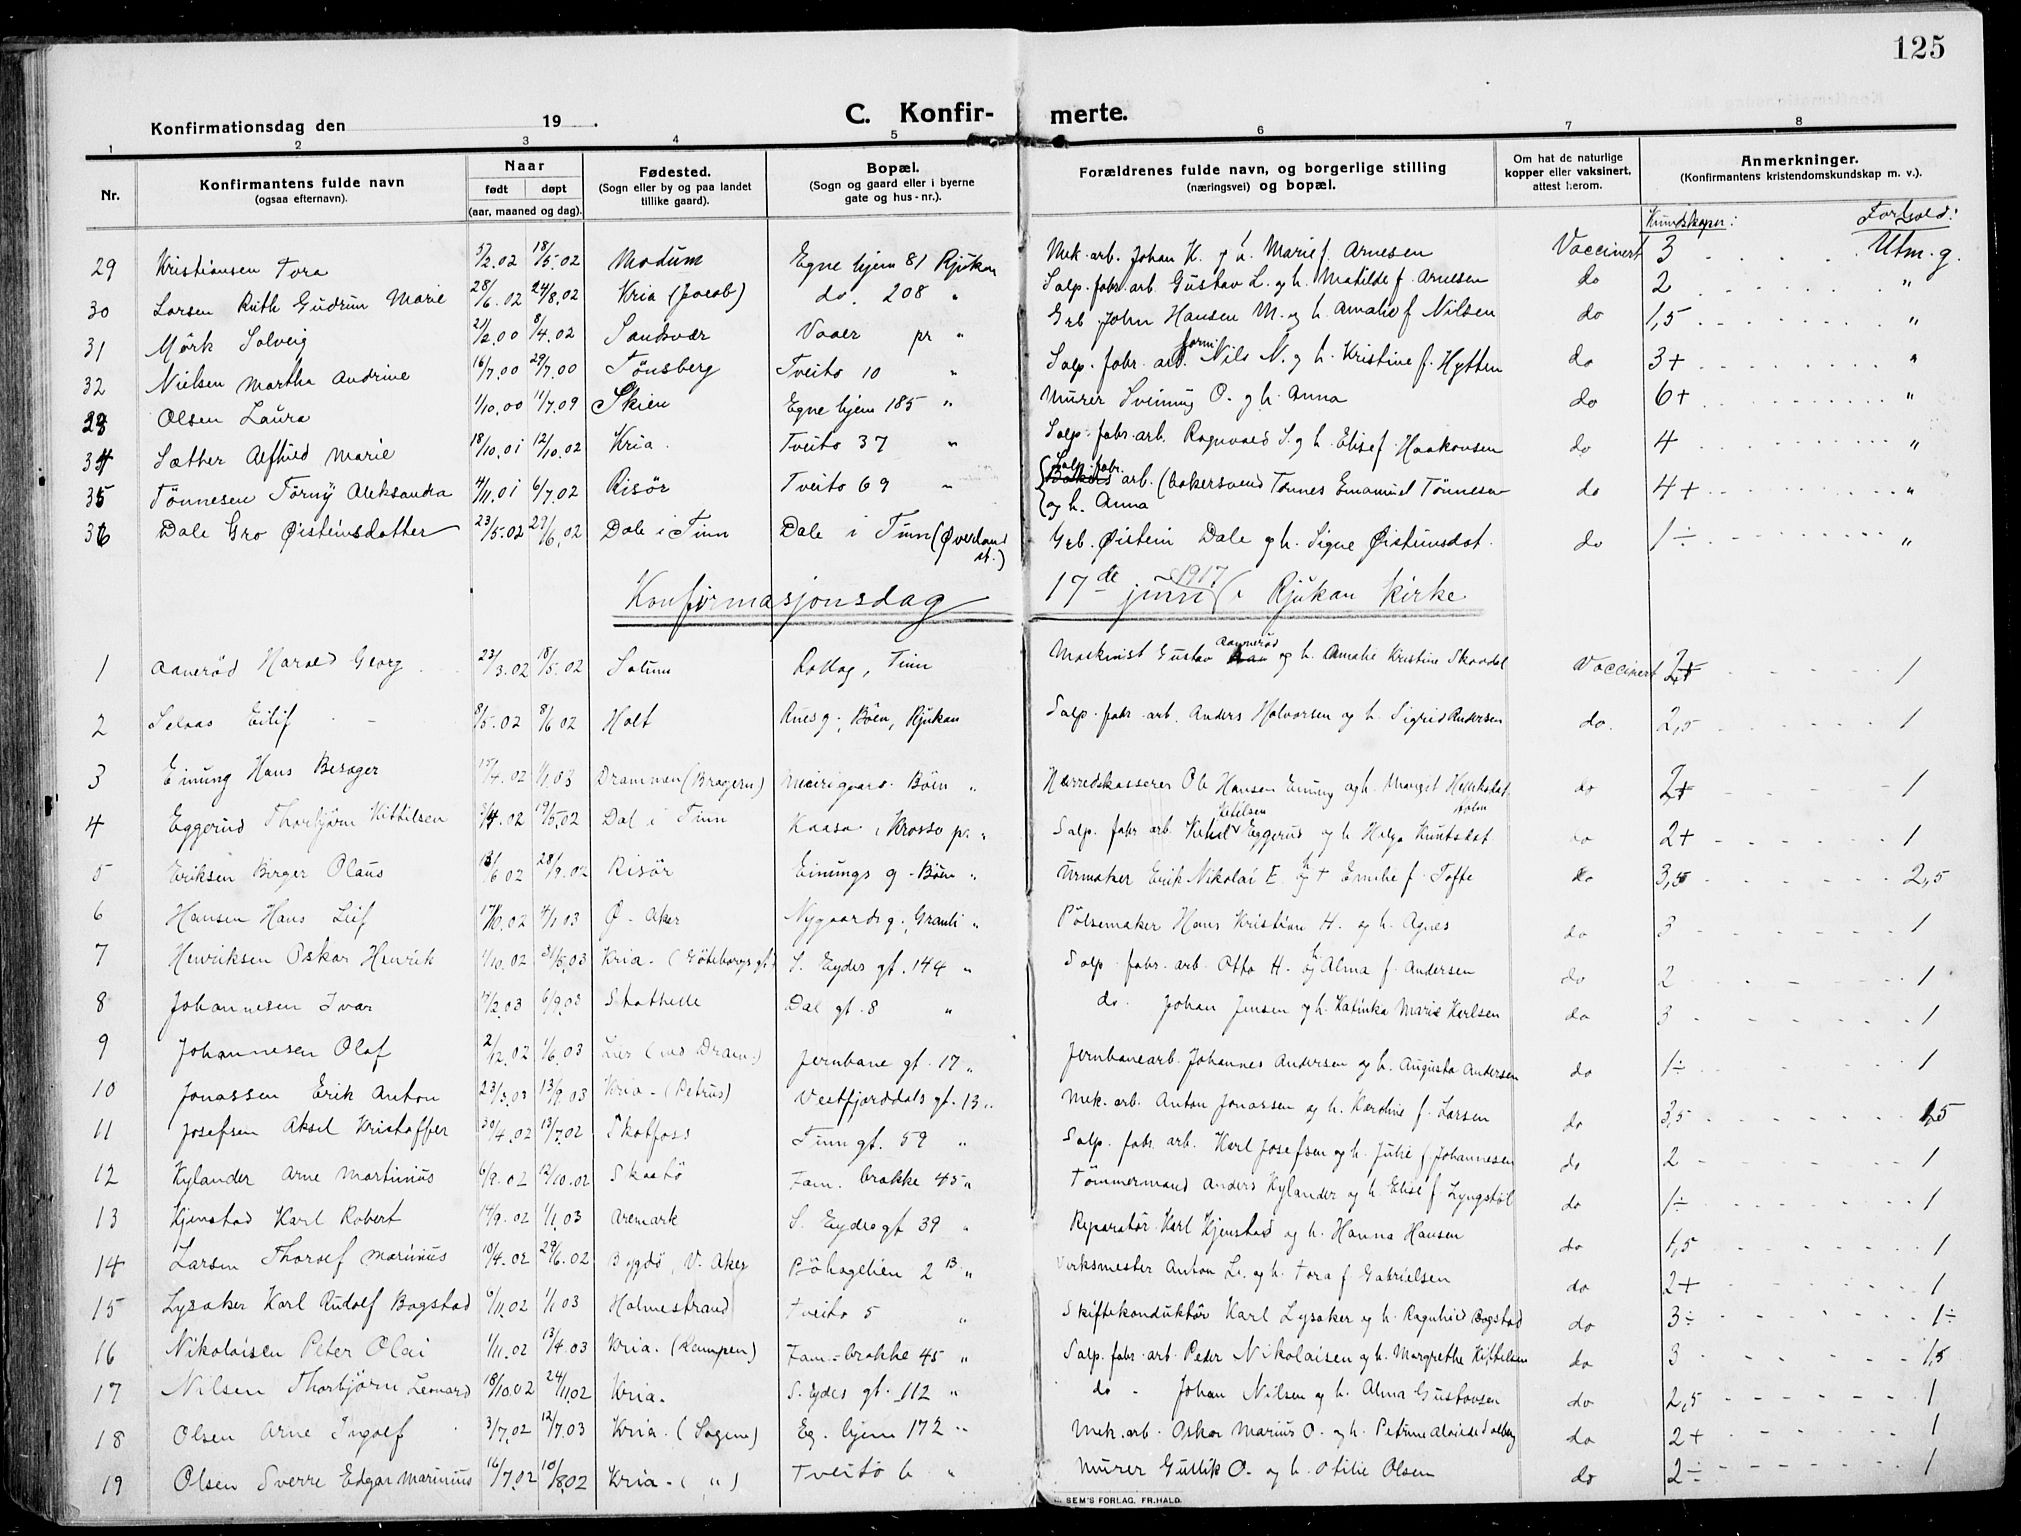 125
Konfirmationsdag den 19 .
C. Konfir- merte.
1 2 3 4 5 6 7 8
Nr.
Konfirmantens fulde navn
(ogsaa efternavn).
Naar
født døpt
(aar, maaned og dag).
Fødested.
(Sogn eller by og paa landet
tillike gaard).
Bopæl.
(Sogn og gaard eller i byerne
gate og hus-nr.).
Forældrenes fulde navn, og borgerlige stilling
(næringsvei) og bopæl.
Om hat de naturlige
kopper eller vaksinert,
attest herom.
Anmerkninger.
(Konfirmantens kristendomskundskap m. v.).
Kundskaper: Forhold:
29 Kristiansen Tora 5/2.02 18/5.02 Modum Egne hjem 81 Rjukan Mek. arb. Johan K. og h. Marie f. Arnesen Vaccinert 3 Utm. g.
30 Larsen Ruth Gudrun Marie 28/6.02 24/8.02 Kria (Jacob) do. 208 " Salp. fabr. arb. Gustav L. og h. Matilde f. Arnesen do 2 "
31 Mørk Solveig 21/2.00 8/4.02 Sandsvær Vaaer pr " Grb John Hansen M. og h. Amalie f Nilsen do 1,5 "
32 Nielsen Martha Andrine 16/7.00 29/7.00 Tønsberg Tveito 10 " Salp. fabr. arb. form. Nils N. og h. Kristine f. Hytten do 3+ "
33 Olsen Laura 1/10.00 11/7.09 Skien Egne hjem 185 " Murer Sveinung O. og h. Anna do 6+ "
34 Sæther Alfhild Marie 18/10.01 12/10.02 Kria. Tveito 37 " Salp. fabr. arb. Ragnvald S. og h. Elise f. Haakonsen do 4 "
35 Tönnesen Törny Aleksandra 4/11.01 6/7.02 Risör Tveito 69 " Salp. fabr. arb. (bakersvend Tønnes Emanuel Tönnesen
og h. Anna do 4+ "
36 Dale Gro Øisteinsdotter 23/5.02 27/6.02 Dale i Tinn Dale i Tinn (Øverland
st.) Grb. Øistein Dale og h. Signe Øisteinsdot. do 1÷ "
Konfirmasjonsdag 17de juni 1917 i Rjukan kirke
1 Aanerød Harald Georg 23/3.02 18/5.02 Solum Rollag, Tinn Maskinist Gustav Aannerød og h. Amalie Kristine Skardal Vaccinert 2+ 1
2 Selaas Eilif 8/5.02 8/6.02 Holt Ruesg., Böen, Rjukan Salp. fabr. arb. Anders Halvorsen og h. Sigrid Andersen do. 2,5 1
3 Einung Hans Besager 15/4.02 1/1.03 Drammen (Bragern) Meierigaard. Böen " Herredskasserer Ole Hansen Einung og h. Margit do 2+ 1
4 Eggerud Thorbjörn Kittilsen 3/4.02 19/5.02 Dal i Tinn Kaasa, Krosso pr. " Salp. fabr. arb. Ketilsen Eggerud og h. Helga Knutsdot do 2+ 1
5 Eriksen Birger Olaus 13/6.02 28/9.02 Risör Einungs g. Böen " Urmaker Erik Nikolai E. og h + Emilie f. Tofte do 3,5 2,5
6 Hansen Hans Leif 4/1.03 Ø. Aker Nygaards g., Granli " Pölsemaker Hans Kristian H. og h. Agnes do 3 1
7 Henriksen Oskar Henrik 1/10.02 31/5.03 Kria. (Göteborgs gt) S. Eydes gt. 144 " Salp. fabr. arb. Otto H. og h Alma f. Andersen do 2 1
8 Johannesen Ivar 17/2.03 6/9.03 Stathelle Dal gt. 8 " do. Johan Jensen og h. Katinka Marie Karlsen do 3 1
9 Johannesen Olaf 2/12.02 1/6.03 Lier (ved Dram.) Jernbane gt. 17 " Jernbanearb. Johannes Andersen og h. Augusta Andersen do 1÷ 1
10 Jonassen Erik Anton 23/3.03 13/9.03 Kria. (Petrus) Vestfjorddals gt. 13 " Mek. arb. Anton Jonassen og h. Karoline f. Larsen do 3,5 1,5
11 Josefsen Aksel Kristoffer 30/4.02 13/7.02 Skotfoss Tinn gt. 59 " Salp. fabr. arb. Karl Josefsen og h. Julie f Johannesen do 2 1
12 Kylander Arne Martinius 6/9.02 12/10.02 Skaatø Fam. brakke 45 " Tömmermand Anders Kylander og h. Elise f Lyngstöl do 1÷ 1
13 Kjenstad Karl Robert 17/9.02 1/1.03 Aremark S. Eydes gt 39 " Reparatør Karl Kjenstad og h. Hanna Hansen do 1,5 1
14 Larsen Thoralf Marinius 10/4.02 29/6.02 Bygdö, V. Aker Böhagelien 2 B " Verksmester Anton L. og h. Tora f Gabrielsen do 2+ 1
15 Lysaker Karl Rudolf Bogstad 6/11.02 1/1.03 Holmestrand Tveito 5 " Skiftekonduktör Karl Lysaker og h. Ragnhild Bogstad do 3÷ 1÷
16 Nikolaisen Peter Olai 1/11.02 13/4.03 Kria. (Kampen) Fam.-brakke 45 " Salp. fabr. arb. Peder Nikolaisen og h. Margrethe Kittelsen do 3 1,5
17 Nilsen Thorbjörn Leonard 18/10.02 24/11.02 Kria. S. Eydes gt. 112 " do Johan Nilsen og h. Alma Gustavsen do 2,5 1
18 Olsen Arne Ingolf 3/7.02 12/7.03 Kria. (Sagene) Eg. hjem 172 " Mek. arb. Oskar Marius O. og h. Petrine do 2+ 1
19 Olsen Sverre Edgar Marinius 16/7.02 10/8.02 Kria. ( " ) Tveito 6 " Murer Gullik O. og h. Otilie Olsen do 2÷ 1
SEM'S FORLAG, FR.HALD.